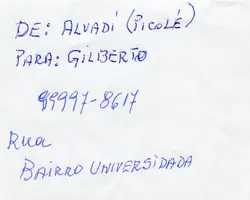 DE: ALVADÍ (PICOLÉ)
PARA: GILBERTO
99997-8617
RUA
BAIRRO UNIVERSIDADA